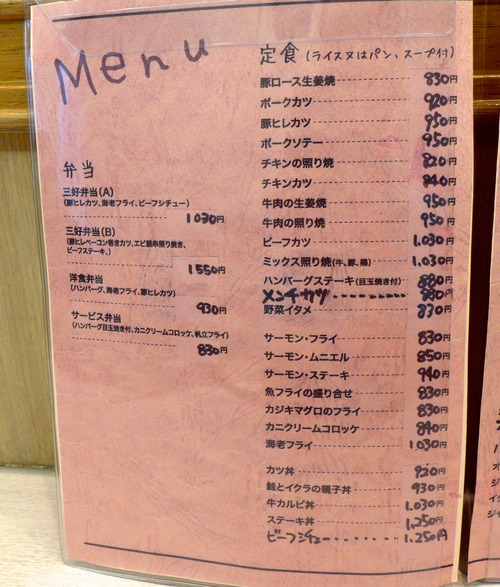 Menu
弁当
三好弁当(A)
(豚ヒレカツ、海老フライ、ビーフシチュー)
1030円
三好弁当(B)
(豚ヒレベーコン巻きカツ、エビ銀串照り焼き、
ビーフステーキ、)
1550円
洋食弁当
(ハンバーグ、海老フライ、豚ヒレカツ)
930円
サービス弁当
(ハンバーグ目玉焼き付、カニクリームコロッケ、帆立フライ)
830円
定食(ライス又はパン、スープ付)
豚ロース生姜焼 830円
ポークカツ 920円
豚ヒレカツ 950円
ポークソテー 950円
チキンの照り焼 820円
チキンカツ 840円
牛肉の生姜焼 950円
牛肉の照り焼 950円
ビーフカツ 1,030円
ミックス照り焼(牛、豚、鶏) 1,030円
ハンバーグステーキ(目玉焼き付) 880円
メンチカツ 880円
野菜イタメ 830円
サーモン・フライ 830円
サーモン・ムニエル 850円
サーモン・ステーキ 940円
魚フライの盛り合せ 830円
カジキマグロのフライ 830円
カニクリームコロッケ 840円
海老フライ 1,030円
カツ丼 920円
鮭とイクラの親子丼 930円
牛カルビ丼 1,030円
ステーキ丼 1,250円
ビーフシチュー 1,250円